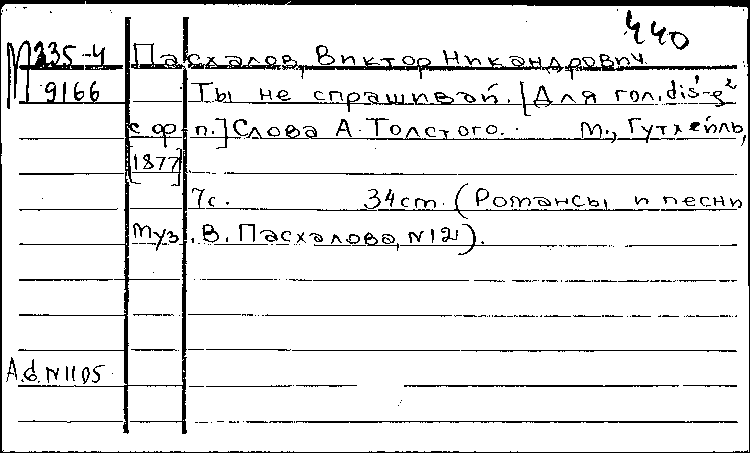 440
М335-4 Пасхалов, Виктор Никандрович.
9166 Ты не спрашивай. [Для гол. dis¹-g²
с ф-п.] Слова А. Толстого. М., Гутхейль,
[1877]
7с. 34ст. (Романсы и песни
муз. В. Пасхалова, №12).
А.б. №1105